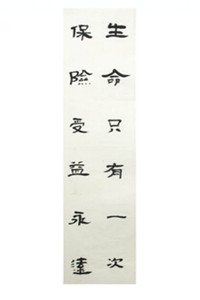 生命只有一次
保險受益永遠